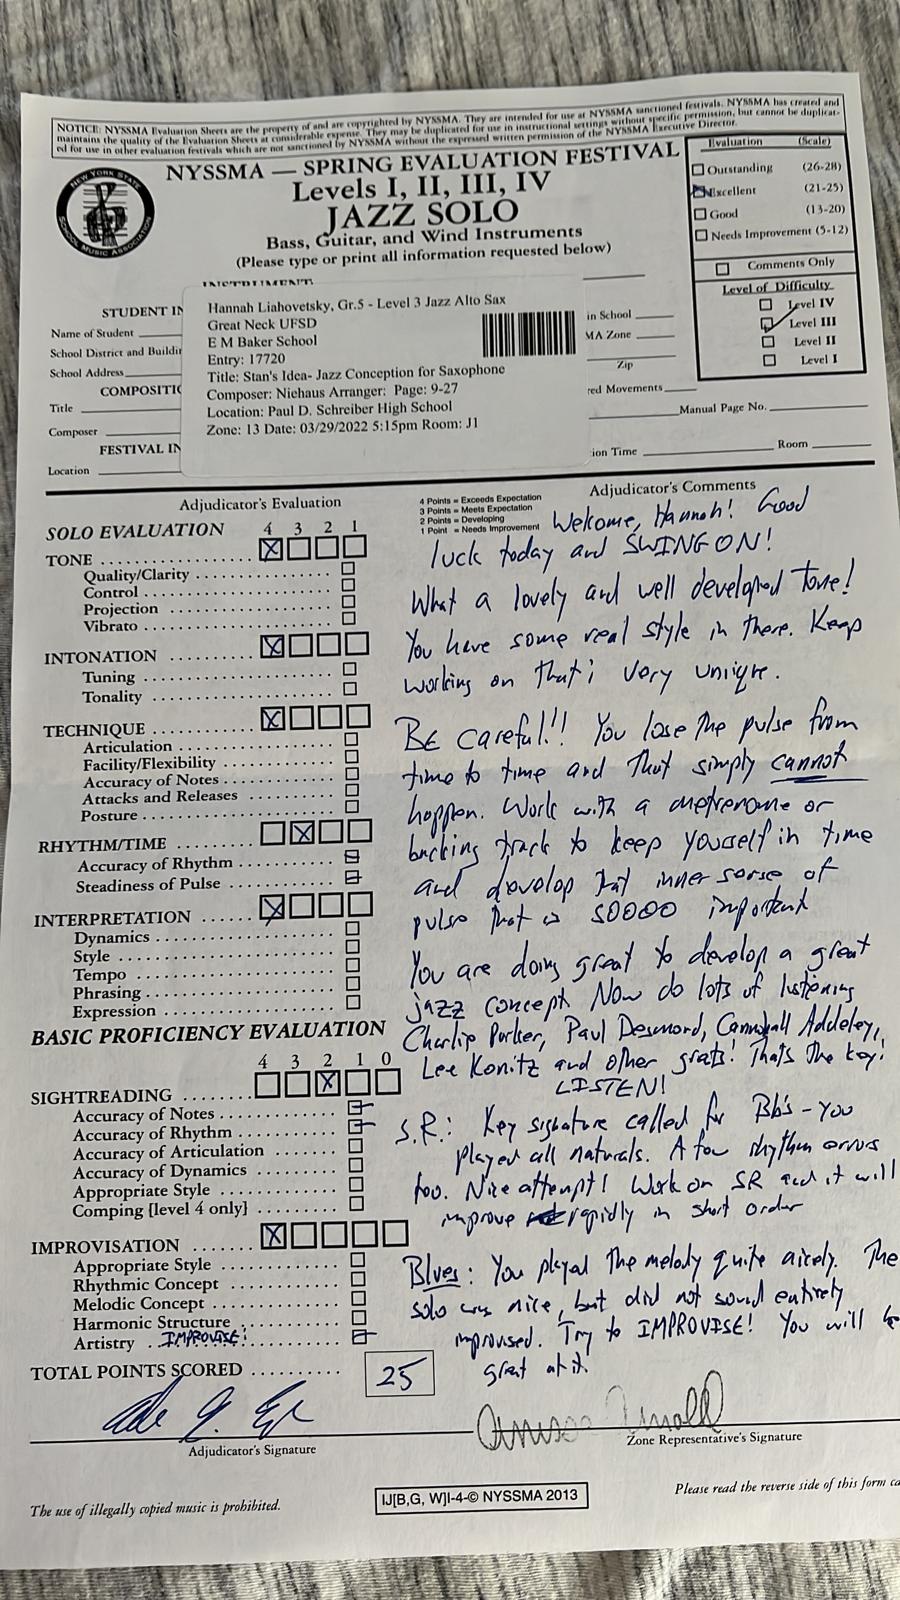 NOTICE: NYSSMA Evaluation Sheets are the property of and are copyrighted by NYSSMA. They are intended for use at NYSSMA sanctioned festivals. NYSSMA has created and
maintains the quality of the Evaluation Sheets at considerable expense. They may be duplicated for use in instructional settings without specific permission, but cannot be duplicat-
ed for use in other evaluation festivals which are not sanctioned by NYSSMA without the expressed written permission of the NYSSMA Executive Director.
NEW YORK STATE SCHOOL MUSIC ASSOCIATION
NYSSMA — SPRING EVALUATION FESTIVAL
Levels I, II, III, IV
JAZZ SOLO
Bass, Guitar, and Wind Instruments
(Please type or print all information requested below)
Evaluation (Scale)
Outstanding (26-28)
Excellent (21-25)
Good (13-20)
Needs Improvement (5-12)
Comments Only
Level of Difficulty
Level IV
Level III
Level II
Level I
INSTRUMENT
STUDENT IN
Name of Student
School District and Buildin
School Address
COMPOSITIO
Title
Composer
FESTIVAL IN
Location
Hannah Liahovetsky, Gr.5 - Level 3 Jazz Alto Sax
Great Neck UFSD
E M Baker School
Entry: 17720
Title: Stan's Idea- Jazz Conception for Saxophone
Composer: Niehaus Arranger: Page: 9-27
Location: Paul D. Schreiber High School
Zone: 13 Date: 03/29/2022 5:15pm Room: J1
in School
MA Zone
Zip
red Movements
Manual Page No.
ion Time Room
Adjudicator's Evaluation
SOLO EVALUATION 4 3 2 1
TONE
Quality/Clarity
Control
Projection
Vibrato
INTONATION
Tuning
Tonality
TECHNIQUE
Articulation
Facility/Flexibility
Accuracy of Notes
Attacks and Releases
Posture
RHYTHM/TIME
Accuracy of Rhythm
Steadiness of Pulse
INTERPRETATION
Dynamics
Style
Tempo
Phrasing
Expression
BASIC PROFICIENCY EVALUATION
4 3 2 1 0
SIGHTREADING
Accuracy of Notes
Accuracy of Rhythm
Accuracy of Articulation
Accuracy of Dynamics
Appropriate Style
Comping [level 4 only]
IMPROVISATION
Appropriate Style
Rhythmic Concept
Melodic Concept
Harmonic Structure
Artistry IMPROVISE!
TOTAL POINTS SCORED 25
4 Points = Exceeds Expectation
3 Points = Meets Expectation
2 Points = Developing
1 Point = Needs Improvement
Adjudicator's Comments
Welcome, Hannah! Good
luck today and SWING ON!
What a lovely and well developed tone!
You have some real style in there. Keep
working on that; very unique.
BE careful!! You lose the pulse from
time to time and that simply cannot
happen. Work with a metronome or
backing track to keep yourself in time
and develop that inner sense of
pulse that is SOOOO important
You are doing great to develop a great
jazz concept. Now do lots of listening
Charlie Parker, Paul Desmond, Cannonball Adderley,
Lee Konitz and other greats! Thats the key!
LISTEN!
S.R.: Key signature called for Bb's - You
played all naturals. A few rhythm errors
too. Nice attempt! Work on SR and it will
improve rapidly in short order
Blues: You played the melody quite nicely. The
solo was nice, but did not sound entirely
improvised. Try to IMPROVISE! You will be
great at it.
Adjudicator's Signature
Zone Representative's Signature
The use of illegally copied music is prohibited.
IJ[B,G, W]I-4-© NYSSMA 2013
Please read the reverse side of this form ca